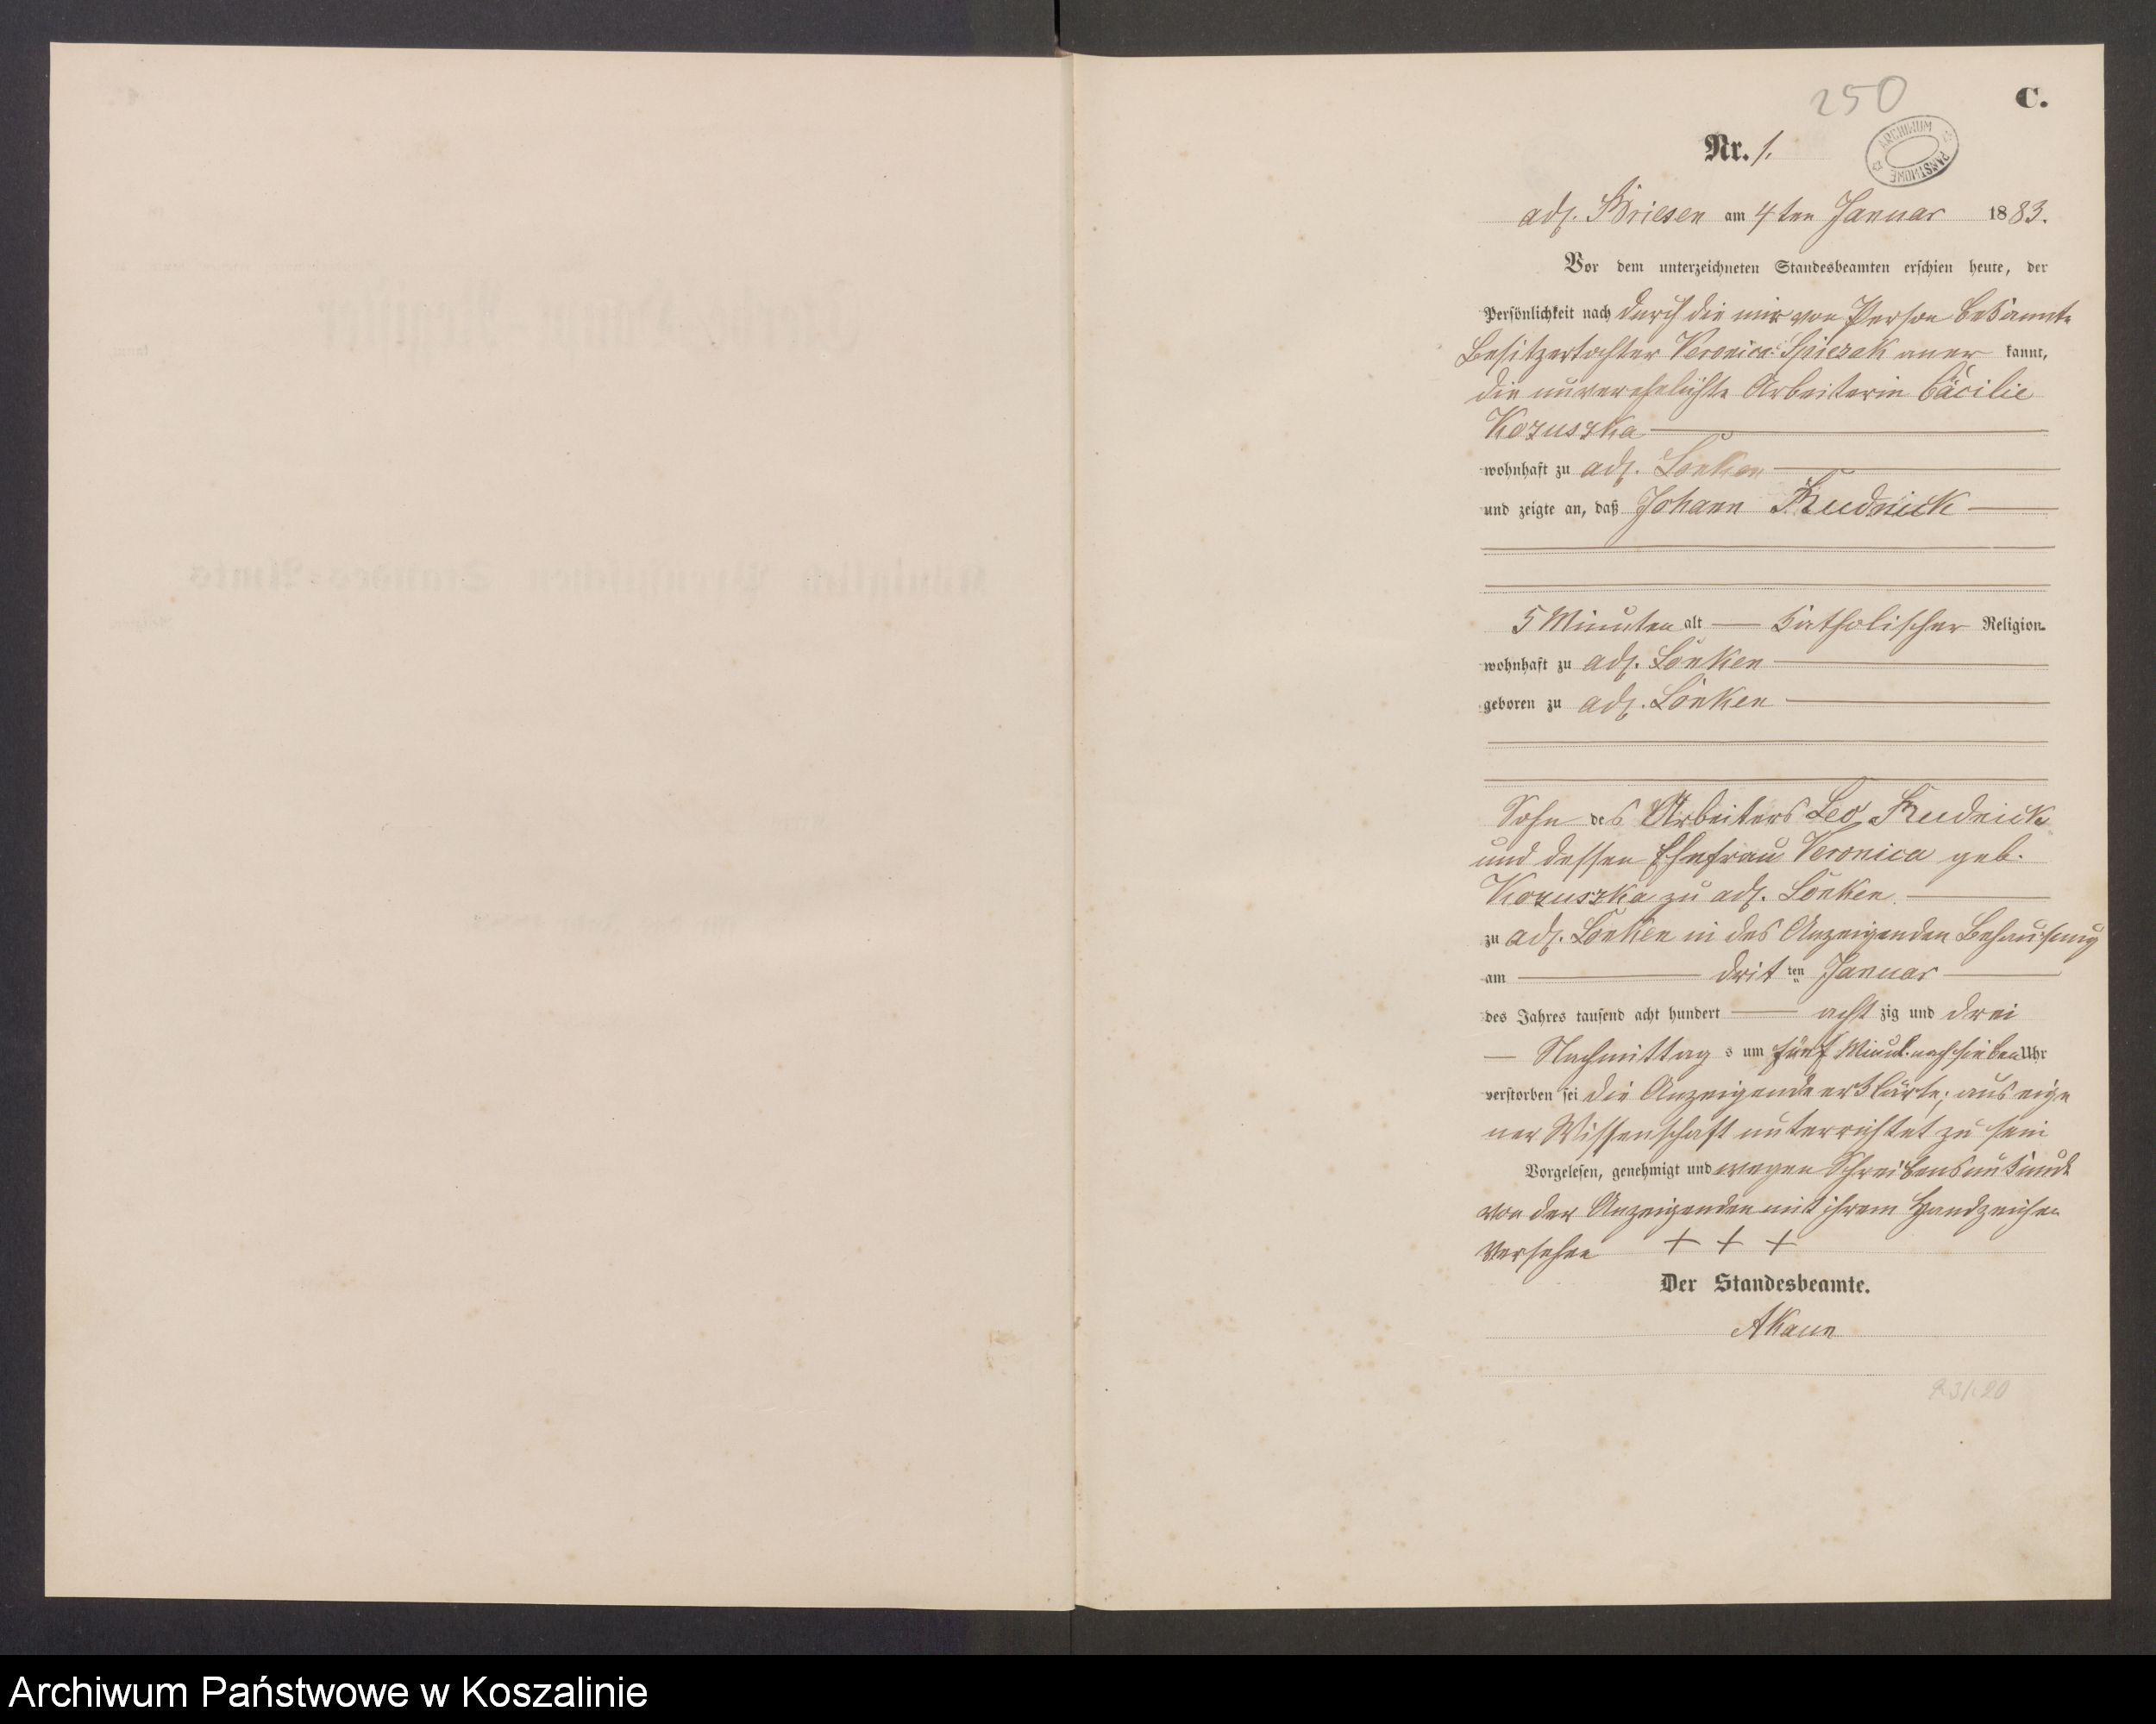 250
C.
Nr. 1.
ARCHIWUM PAŃSTWOWE
adl. Briesen am 4ten Januar 1883.
Vor dem unterzeichneten Standesbeamten erschien heute, der
Persönlichkeit nach durch die mir von Person bekannte
Besitzertochter Veronica Spiczak aner kannt,
die unverehelichte Arbeiterin Cäcilie
Kozuszka
wohnhaft zu adl. Lonken
und zeigte an, daß Johann Rudnick
5 Minuten alt katholischer Religion
wohnhaft zu adl. Lonken
geboren zu adl. Lonken
Sohn des Arbeiters Leo Rudnick
und dessen Ehefrau Veronica geb.
Kozuszka zu adl. Lonken
zu adl. Lonken in des Anzeigenden Behausung
am dritten Januar
des Jahres tausend acht hundert achtzig und drei
Nachmittags um fünf Minut. nach sieben Uhr
verstorben sei die Anzeigende erklärte, aus eige
ner Wissenschaft unterrichtet zu sein
Vorgelesen, genehmigt und wegen Schreibensunkunde
von der Anzeigenden mit ihrem Handzeichen
versehen + + +
Der Standesbeamte.
Archiwum Państwowe w Koszalinie